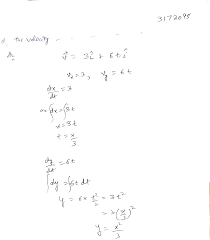 3172095
d. The velocity
v⃗ = 3î + 6t ĵ
vₓ = 3, v_y = 6t
dx/dt = 3
or ∫dx = ∫3t
x = 3t
t = x/3
dy/dt = 6t
∫dy = ∫6t dt
y = 6 × t²/2 = 3t²
= 3(x/3)²
y = x²/3